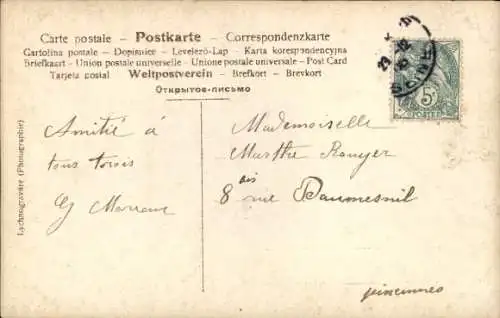 Carte postale - Postkarte - Correspondenzkarte
Cartolina postale - Dopisnice - Levelezö-Lap - Karta korespondencyjna
Briefkaart - Union postale universelle - Unione postale universale - Post Card
Tarjeta postal - Weltpostverein - Brefkort - Brevkort
Открытое-письмо
Amitié à
tous trois
G Moreau
Mademoiselle
Marthe Rouyer
8 bis rue Daumesnil
Vincennes
Lychnogravure (Phonographie)
5c
POSTES
SEINE